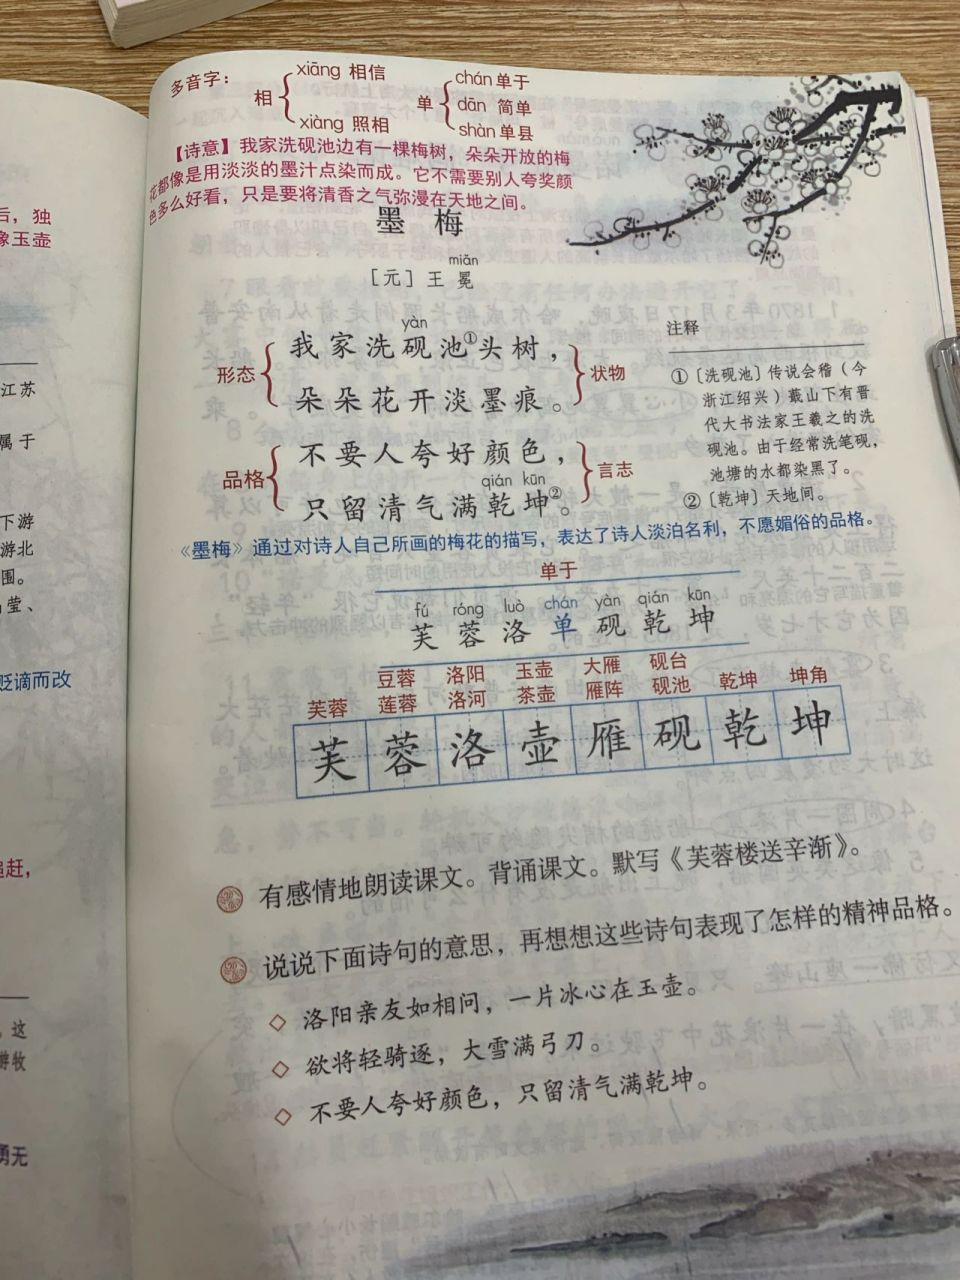 多音字：
相
xiāng 相信
xiàng 照相
单
chán 单于
dān 简单
shàn 单县
【诗意】我家洗砚池边有一棵梅树，朵朵开放的梅
花都像是用淡淡的墨汁点染而成。它不需要别人夸奖颜
色多么好看，只是要将清香之气弥漫在天地之间。
墨 梅
miǎn
［元］王 冕
yàn
形态
我家洗砚池①头树，
朵朵花开淡墨痕。
状物
品格
不要人夸好颜色，
qián kūn
只留清气满乾坤②。
言志
注释
①〔洗砚池〕传说会稽（今
浙江绍兴）蕺山下有晋
代大书法家王羲之的洗
砚池。由于经常洗笔砚，
池塘的水都染黑了。
②〔乾坤〕天地间。
《墨梅》通过对诗人自己所画的梅花的描写，表达了诗人淡泊名利，不愿媚俗的品格。
单于
fú róng luò chán yàn qián kūn
芙 蓉 洛 单 砚 乾 坤
豆蓉 洛阳 玉壶 大雁 砚台
芙蓉 莲蓉 洛河 茶壶 雁阵 砚池 乾坤 坤角
芙 蓉 洛 壶 雁 砚 乾 坤
有感情地朗读课文。背诵课文。默写《芙蓉楼送辛渐》。
说说下面诗句的意思，再想想这些诗句表现了怎样的精神品格。
◇ 洛阳亲友如相问，一片冰心在玉壶。
◇ 欲将轻骑逐，大雪满弓刀。
◇ 不要人夸好颜色，只留清气满乾坤。
后，独
像玉壶
江苏
属于
下游
游北
围。
莹、
贬谪而改
追赶，
，这
游牧
勇无